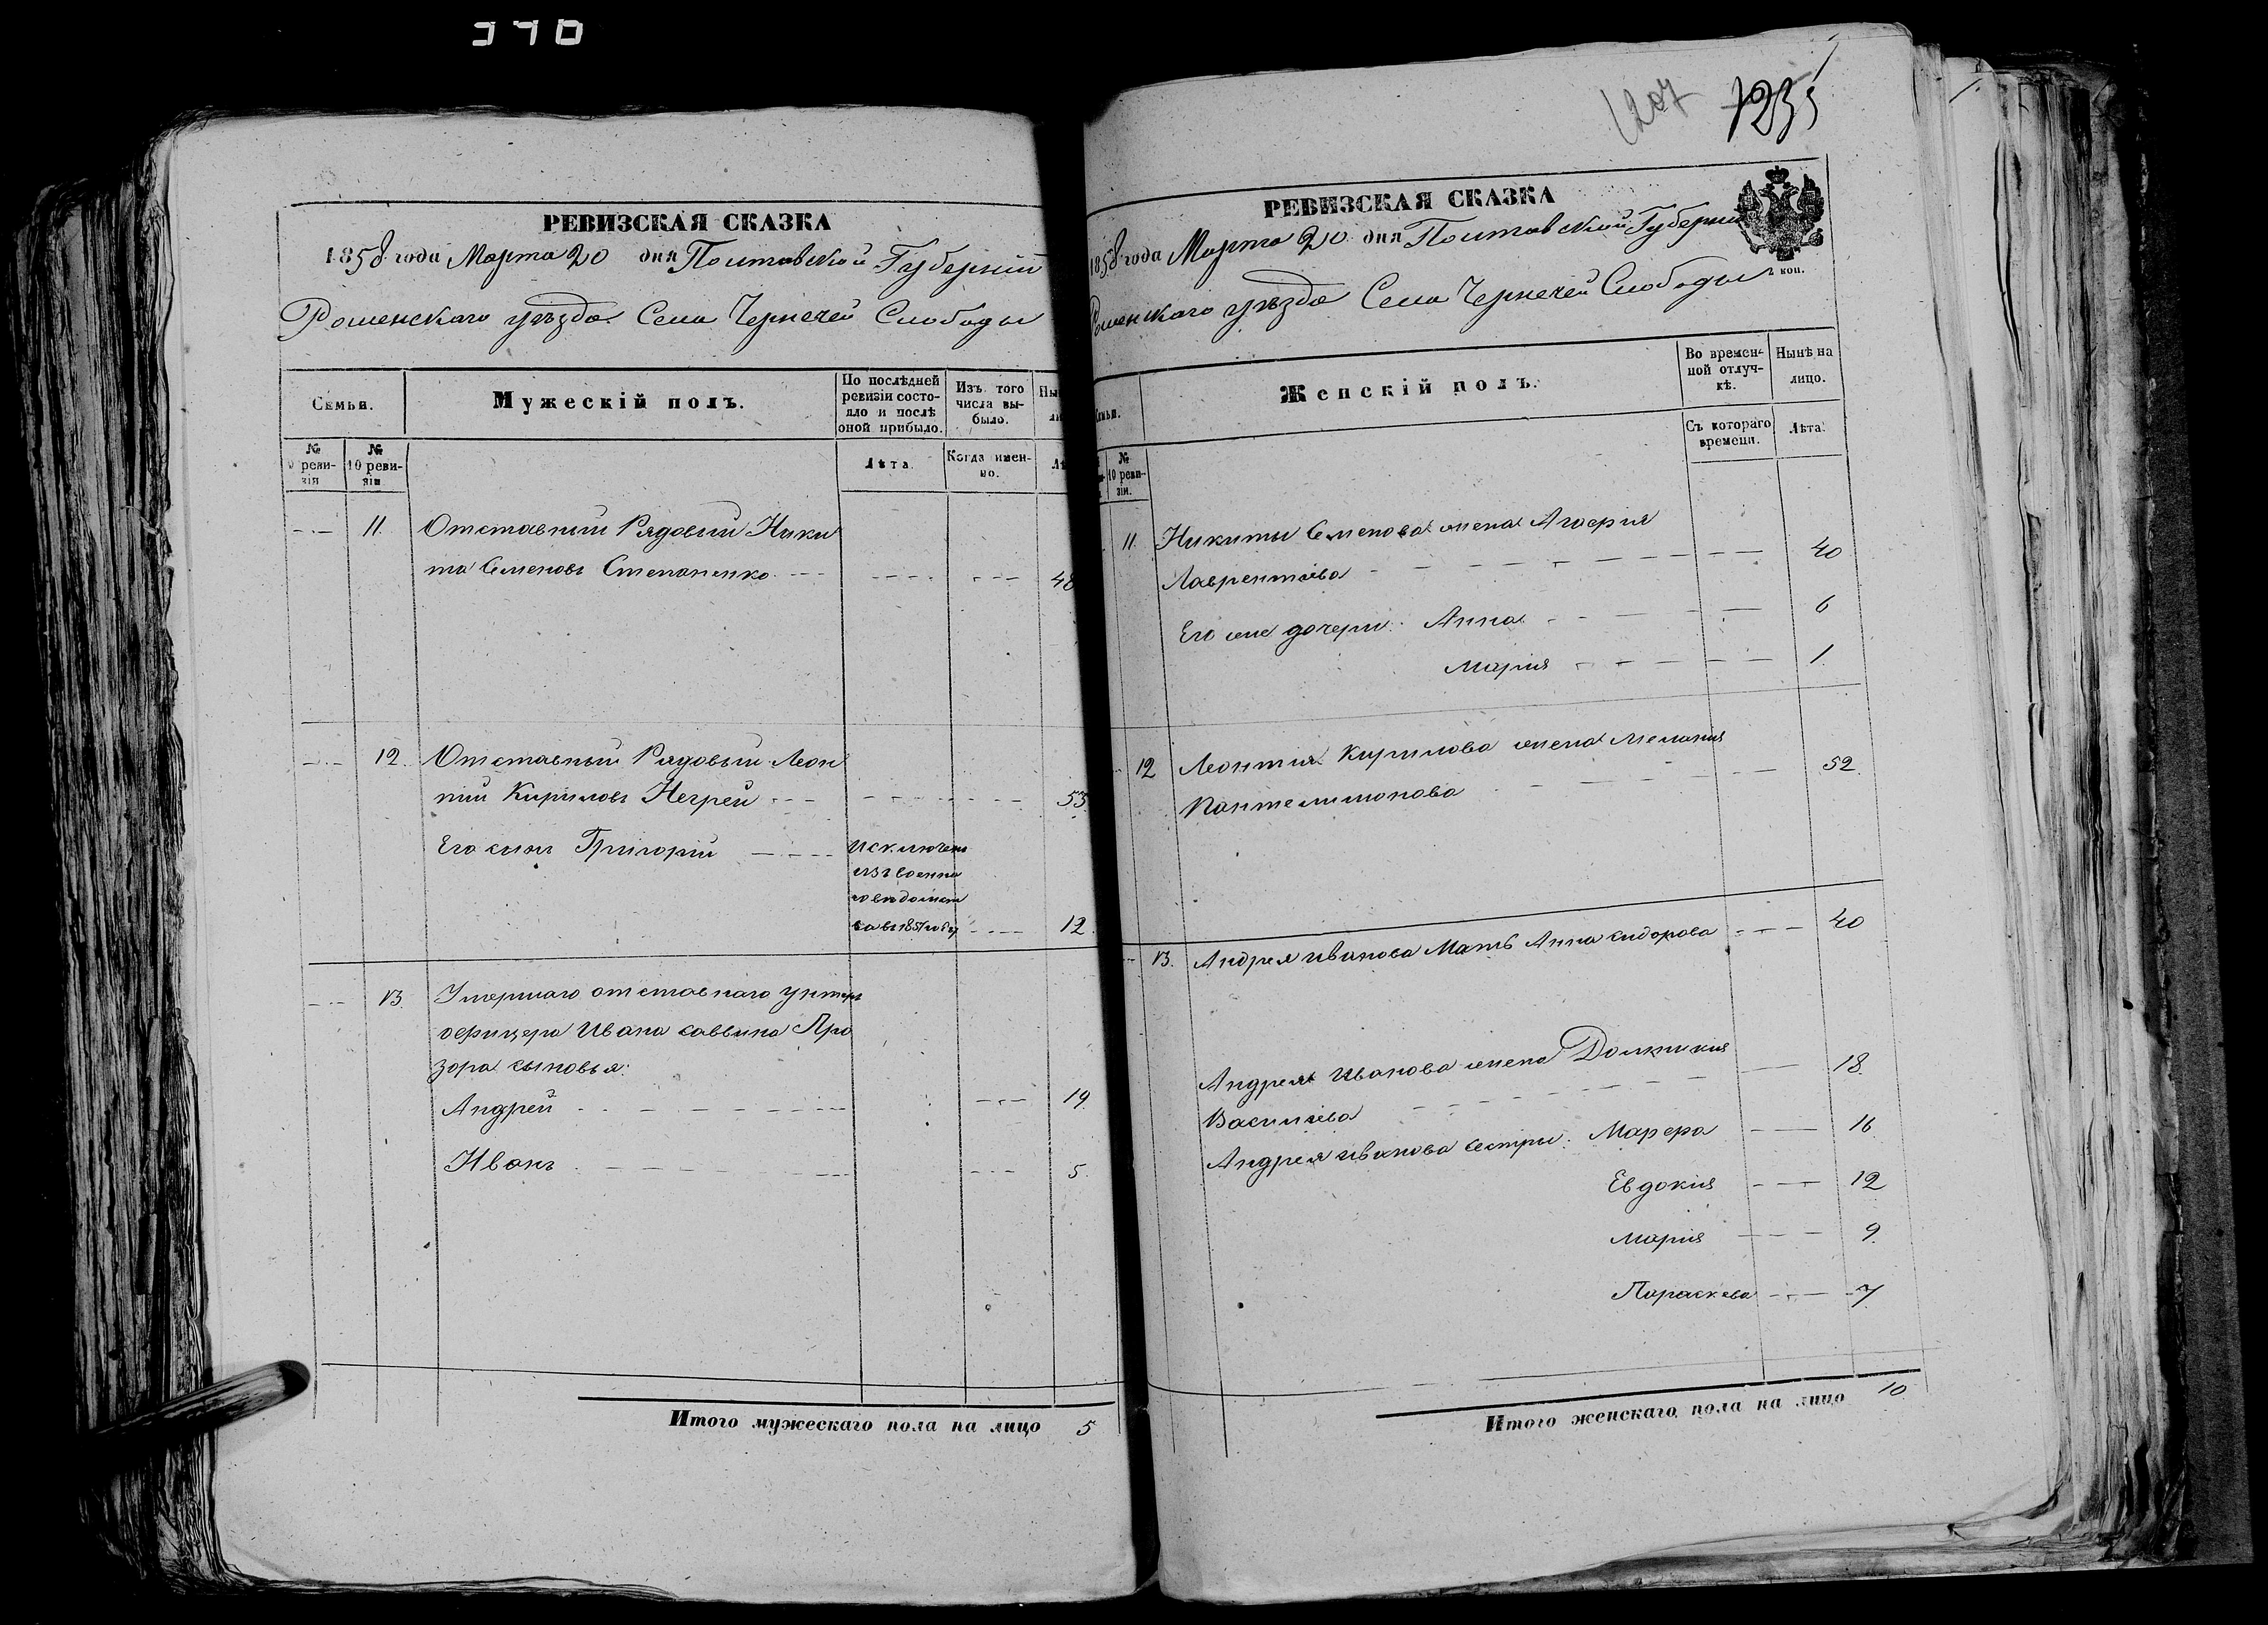 370
РЕВИЗСКАЯ СКАЗКА
1858 года Марта 20 дня Полтавской Губерніи
Роменскаго уѣзда Села Чернечей Слободы
Семьи.
Мужескій полъ.
По послѣдней ревизіи состояло и послѣ оной прибыло.
Изъ того числа выбыло.
№ ревизія
№ 10 ревизіи
Лѣта.
Когда именно.
11. Отставный Рядовый Ники
та Семеновъ Степаненко 48
12. Отставный Рядовый Леон
тій Кириловъ Негрей 53
Его сынъ Григорій исключенъ
изъ военна
го вѣдомст
ва въ 1857 году 12.
13. Умершаго отставнаго унтеръ
офицера Ивана Саввина Про
зора сыновья:
Андрей 19.
Иванъ 5.
Итого мужескаго пола на лицо 5
1207 1235
РЕВИЗСКАЯ СКАЗКА
1858 года Марта 20 дня Полтавской Губерніи
Роменскаго уѣзда Села Чернечей Слободы
2 коп.
Женскій полъ.
Во временной отлучкѣ.
Нынѣ на лицо.
№ 10 ревизіи.
Съ котораго времени.
Лѣта.
11. Никиты Семенова жена Агафія
Лаврентіева 40
Его же дочери: Анна 6
Марія 1.
12 Леонтія Кирилова жена Меланія
Пантелимонова 52.
13. Андрея Иванова Мать Анна Сидорова 40
Андрея Иванова жена Домникія
Василіева 18.
Андрея Иванова сестры: Марфа 16
Евдокія 12
Марія 9.
Параскева 7
Итого женскаго пола на лицо 10